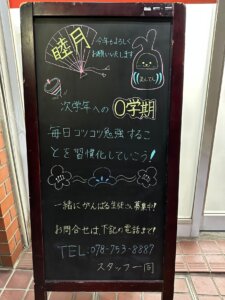 睦月
今年もよろしく
お願いいたします
次学年への0学期
毎日コツコツ勉強するこ
とを習慣化していこう!
一緒にがんばる生徒さん募集中!
お問合せは、下記の電話まで!
TEL:078-753-8887
スタッフ一同